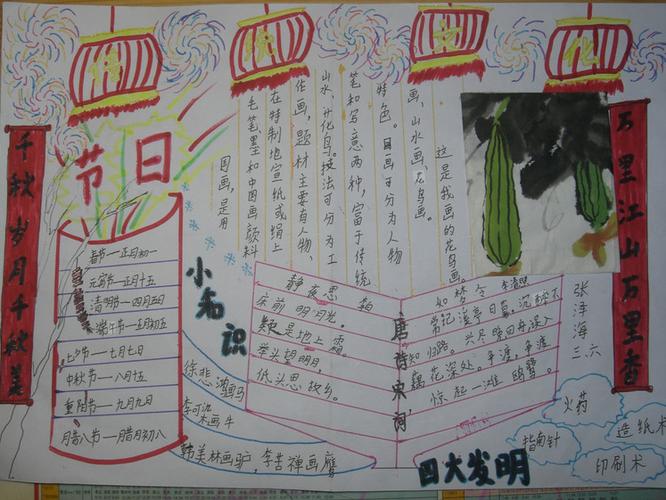 传 统 文 化
千秋岁月千秋美
节日
春节—正月初一
元宵节—正月十五
清明节—四月五日
端午节—五月初五
七夕节—七月七日
中秋节—八月十五
重阳节—九月九日
腊八节—腊月初八
国画,是用
毛笔墨和中国画颜料
在特制地宣纸或绢上
作画,题材主要有人物、
山水、花鸟。技法可分为工
笔和写意两种,富于传统
特色。国画可分为人物
画,山水画,花鸟画。
这是我画的花鸟画。
小知识
徐悲鸿画马
李可染画牛
韩美林画驴,李苦禅画鹰
静夜思
床前明月光。
疑是地上霜
举头望明月
低头思故乡。
唐诗宋词
如梦令 李清照
常记溪亭日暮,沉醉不
知归路。兴尽晚回舟误入
藕花深处。争渡,争渡
惊起一滩鸥鹭。
万里江山万里香
张泽海
三.六
四大发明
火药
造纸术
指南针
印刷术